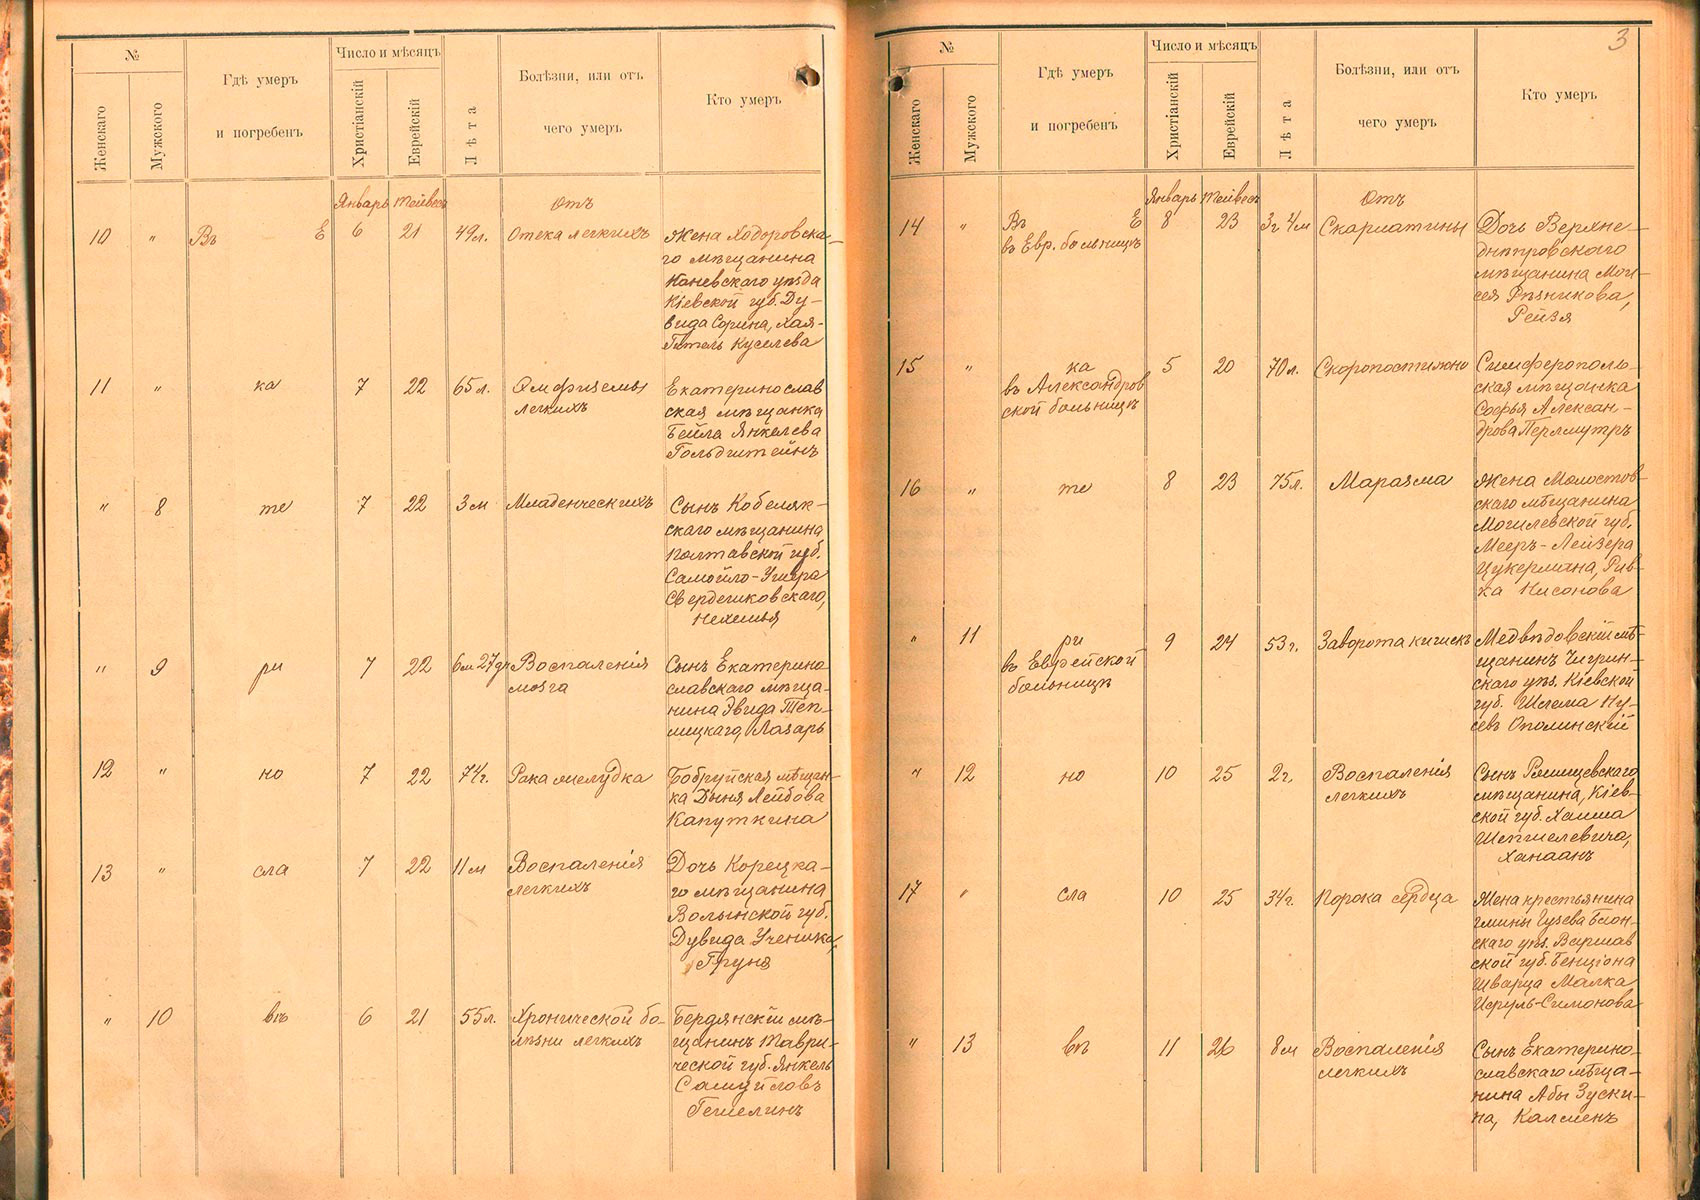 №
Женскаго
Мужского
Гдѣ умеръ
и погребенъ
Число и мѣсяцъ
Христіанскій
Еврейскій
Лѣта
Болѣзни, или отъ
чего умеръ
Кто умеръ
Январь Тейвесъ
Отъ
10 " Въ Е 6 21 49л. Отека легкихъ
Жена Ходоровска-
го мѣщанина
Каневскаго уѣзда
Кіевской губ. Ду-
вида Сорина, Хая-
Гитель Куселева
11 " ка 7 22 65л. Эмфиземы
легкихъ
Екатеринослав
ская мѣщанка
Бейла Янкелева
Гольдштейнъ
" 8 те 7 22 3м Младенческихъ
Сынъ Кобеляк-
скаго мѣщанина
Полтавской губ.
Самойло-Ушера
Свердликовскаго,
Нехемья
" 9 ри 7 22 6м 27дн Воспаленія
мозга
Сынъ Екатерино
славскаго мѣща-
нина Эвида Теп-
лицкаго, Лазарь
12 " но 7 22 74г. Рака желудка
Бобруйская мѣщан-
ка Дыня Лейбова
Капуткина
13 " сла 7 22 11м Воспаленія
легкихъ
Дочь Корецка-
го мѣщанина
Волынской губ.
Дувида Ученика,
Груня
" 10 въ 6 21 55л. Хронической бо-
лѣзни легкихъ
Бердянскій мѣ-
щанинъ Таври-
ческой губ. Янкель
Самуйловъ
Гешелинъ
3
№
Женскаго
Мужского
Гдѣ умеръ
и погребенъ
Число и мѣсяцъ
Христіанскій
Еврейскій
Лѣта
Болѣзни, или отъ
чего умеръ
Кто умеръ
Январь Тейвесъ
Отъ
14 " Въ Е 8 23 3г 4м Скарлатины
въ Евр. больницѣ
Дочь Верхне-
днѣпровскаго
мѣщанина Мои-
сея Рѣзникова,
Рейзя
15 " ка 5 20 70л. Скоропостижно
въ Александров
ской больницѣ
Симферополь-
ская мѣщанка
Софья Алексан-
дрова Перлмутръ
16 " те 8 23 75л. Маразма
Жена Молостов-
скаго мѣщанина
Могилевской губ.
Мееръ-Лейзера
Цукермана, Рив-
ка Нисонова
" 11 ри 9 24 53г. Заворота кишекъ
въ Еврейской
больницѣ
Медвѣдовскій мѣ-
щанинъ Чигрин-
скаго уѣз. Кіевской
губ. Шлема Ну-
севъ Ополинскій
" 12 но 10 25 2г. Воспаленія
легкихъ
Сынъ Ржищевскаго
мѣщанина, Кіев-
ской губ. Хаима
Шепшелевича,
Ханаанъ
17 " сла 10 25 34г. Порока сердца
Жена крестьянина
гмины Гузева Блон-
скаго уѣз. Варшав
ской губ. Бенціона
Шварца Малка
Исруль-Симонова
" 13 въ 11 26 8м Воспаленія
легкихъ
Сынъ Екатерино-
славскаго мѣща-
нина Абы Зуски-
на, Калменъ